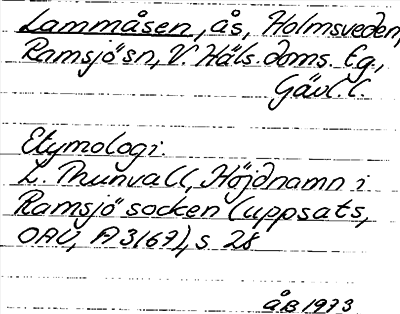 Lammåsen, ås, Holmsveden,
Ramsjö sn, V. Häls. doms. fg.,
Gävl. l.
Etymologi.
L. Thunvall, Höjdnamn i
Ramsjö socken (uppsats,
OAU, A 3167), s 28
ÅB 1973